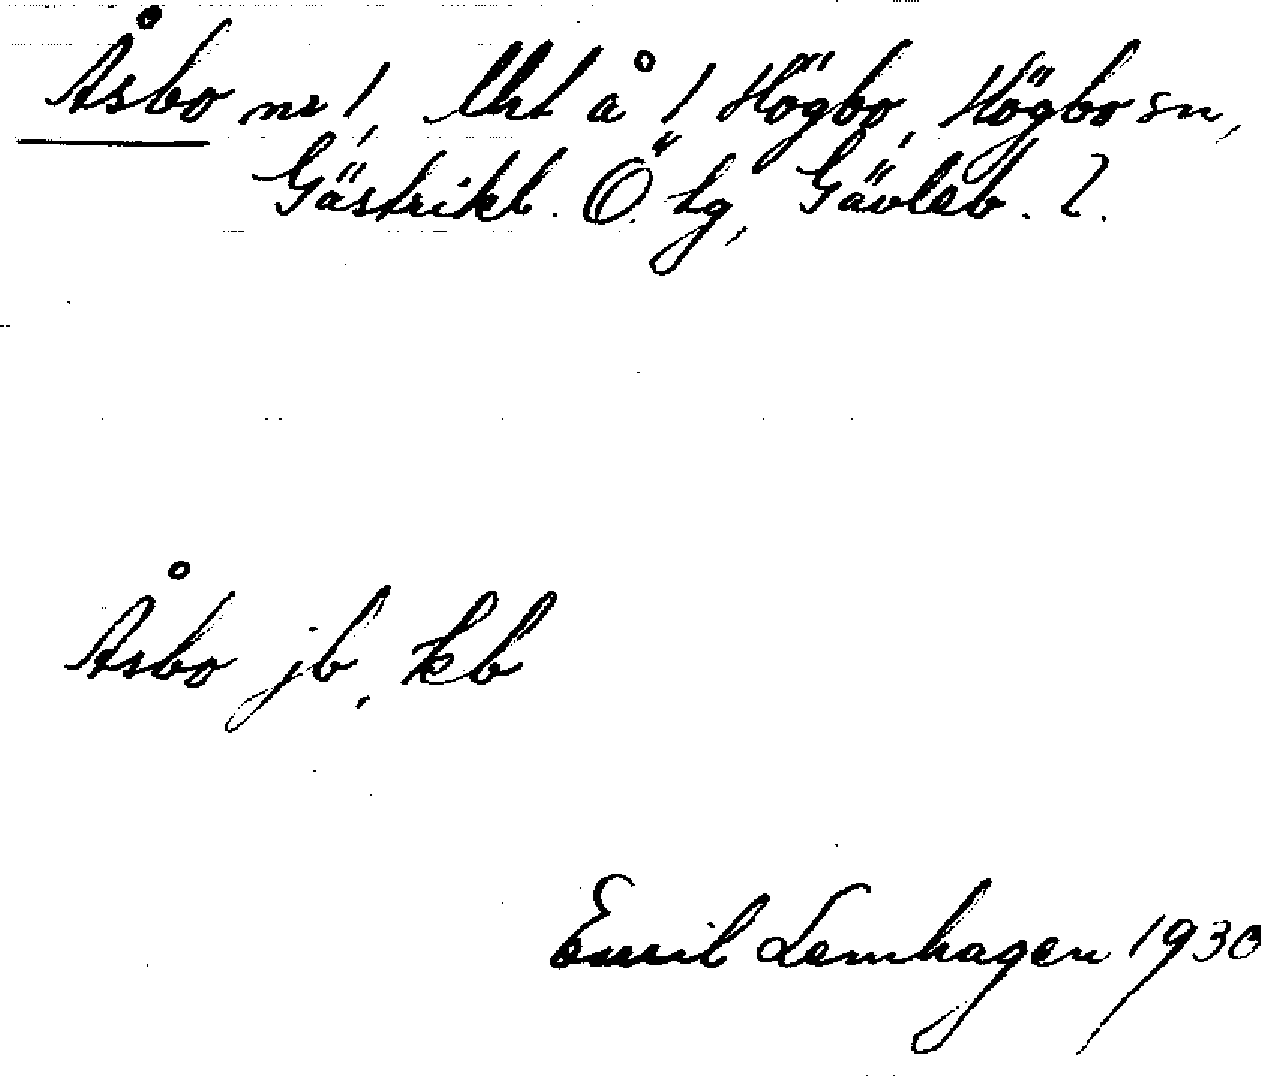 Åsbo nr 1, lht å 1 Högbo, Högbo sn,
Gästrikl. Ö. tg, Gävleb. l.
Åsbo jb, kb
Emil Lemhagen 1930